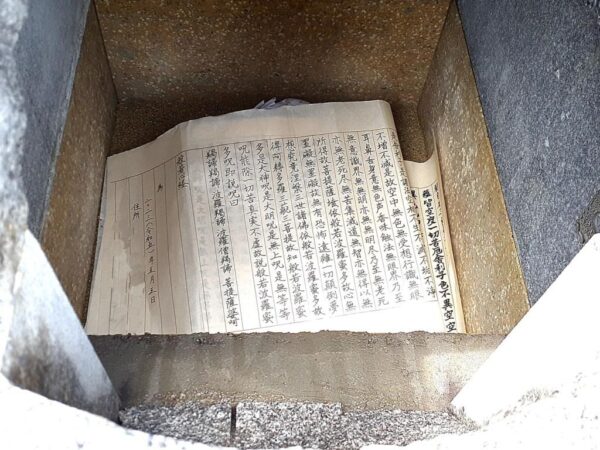 皆空度一切苦厄舍利子色不異空空
不増不減是故空中無色無受想行識無眼
耳鼻舌身意無色声香味触法無眼界乃至
無意識界無無明亦無無明尽乃至無老死
亦無老死尽無苦集滅道無智亦無得以無
所得故菩提薩埵依般若波羅蜜多故心無
罣礙無罣礙故無有恐怖遠離一切顛倒夢
想究竟涅槃三世諸仏依般若波羅蜜多故
得阿耨多羅三藐三菩提故知般若波羅蜜
多是大神呪是大明呪是無上呪是無等等
呪能除一切苦真実不虚故説般若波羅蜜
多呪即説呪曰
羯諦羯諦 波羅羯諦 波羅僧羯諦 菩提薩婆訶
般若心経
為
令和五年五月三日
住所